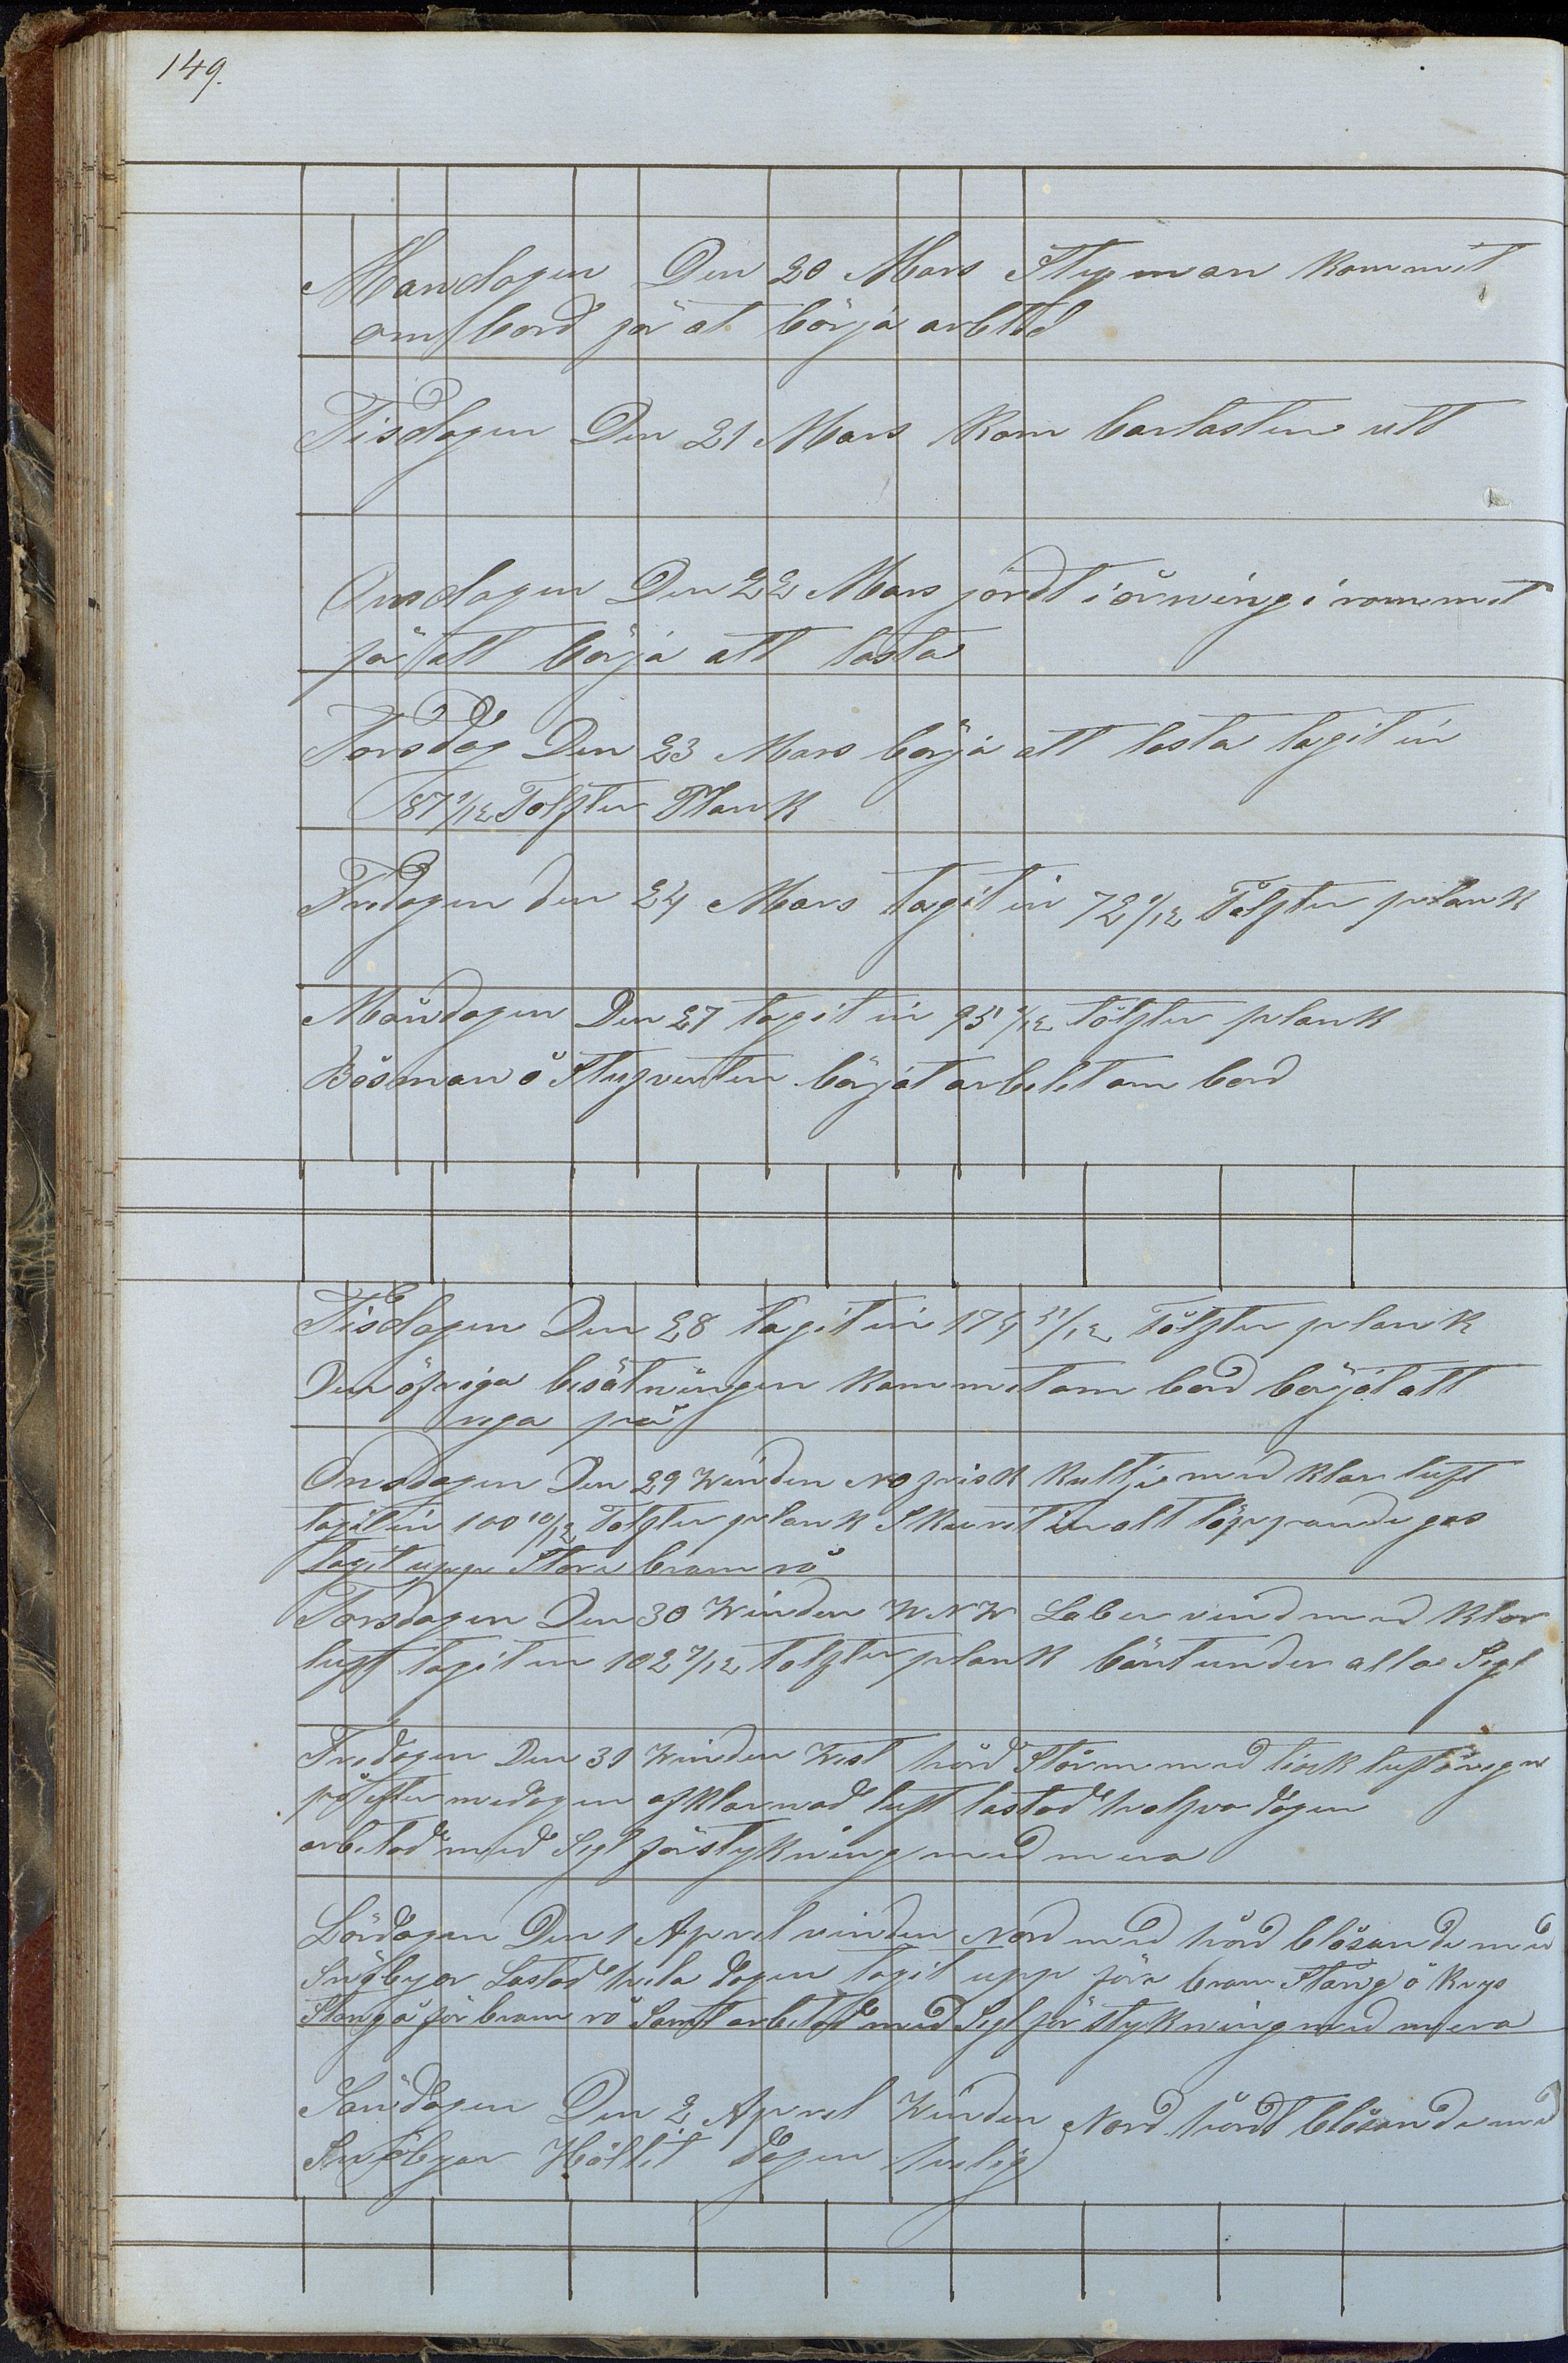 149.
Mandagen Den 20 Mars Styrman kommit
om bord för at börja arbtad
Tisdagen Den 21 Mars kom barlasten utt
Onsdagen Den 22 Mars jördt i årning i rommet
för att börja att lasta
Torsdag Den 23 Mars börja att lasta tagit in
Tolfter Plank
Fredagen den 24 Mars tagit in Tolfter plank
Måndagen Den 27 tagit in tolfter plank
Båsman o Stuverten börjat arbetet om bord
Tisdagen Den 28 tagit in 174 11/12 Tolfter plank
Den öfriga besätningen kommit om bord börjat att
riga på
Onsdagen Den 29 Winden NO frisk kultje med klar luft
tagit in 100 10/12 Tolfter plank Skurit in alt löppande gos
tagit upp Stora bram rå
Torsdagen Den 30 Winden WNW Laber vind med klar
luft tagit in 102 7/12 tolfter plank bänt under alla Segl
Fredagen Den 31 Winden West hård Storm med tiok luft o regn
på efter medagen afklarnad luft lastad halfva dagen
arbetad med Segl förstykning med mera
Lördagen Den 1 Aprel vinden Nord med hård blåsande med
Snöbyar Lastad hela dagen tagit upp före bram Stång o krys
Stång o för bram rå Samt arbetad med Segl förstykning med mera
Söndagen Den 2 Aprel Winden Nord hårdt blåsande med
Snöbyar Hållit dagen helig